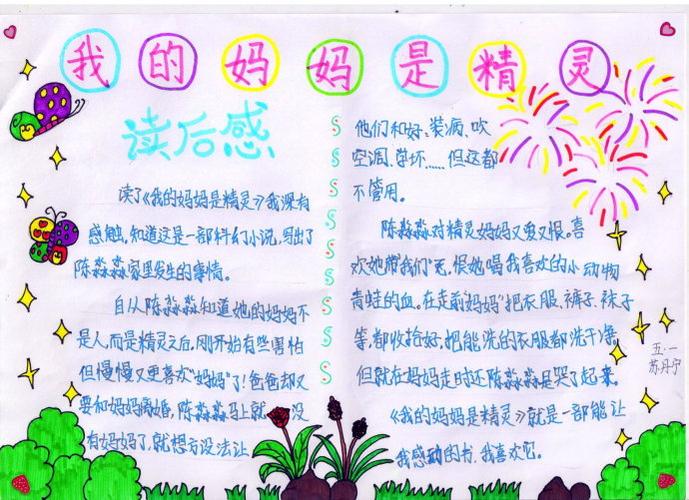 我的妈妈是精灵
读后感
读了《我的妈妈是精灵》我深有
感触,知道这是一部科幻小说,写出了
陈淼淼家里发生的事情。
自从陈淼淼知道她的妈妈不
是人,而是精灵之后,刚开始有些害怕
但慢慢又更喜欢“妈妈”了!爸爸却又
要和妈妈离婚,陈淼淼马上就 没
有妈妈了,就想方设法让
他们和好、装病、吹
空调、学坏……但这都
不管用。
陈淼淼对精灵妈妈又爱又恨。喜
欢她带我们飞,恨她喝我喜欢的小动物
青蛙的血。在走前妈妈“把衣服、裤子、袜子
等,都收拾好,把能洗的衣服都洗干净。
但就在妈妈走时还陈淼淼是哭了起来。
《我的妈妈是精灵》就是一部能让
我感动的书,我喜欢它。
五·一
苏丹宁